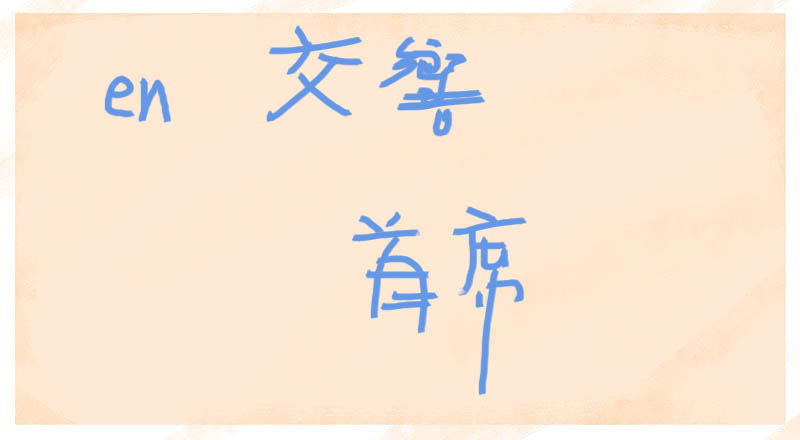 en 交響
首席